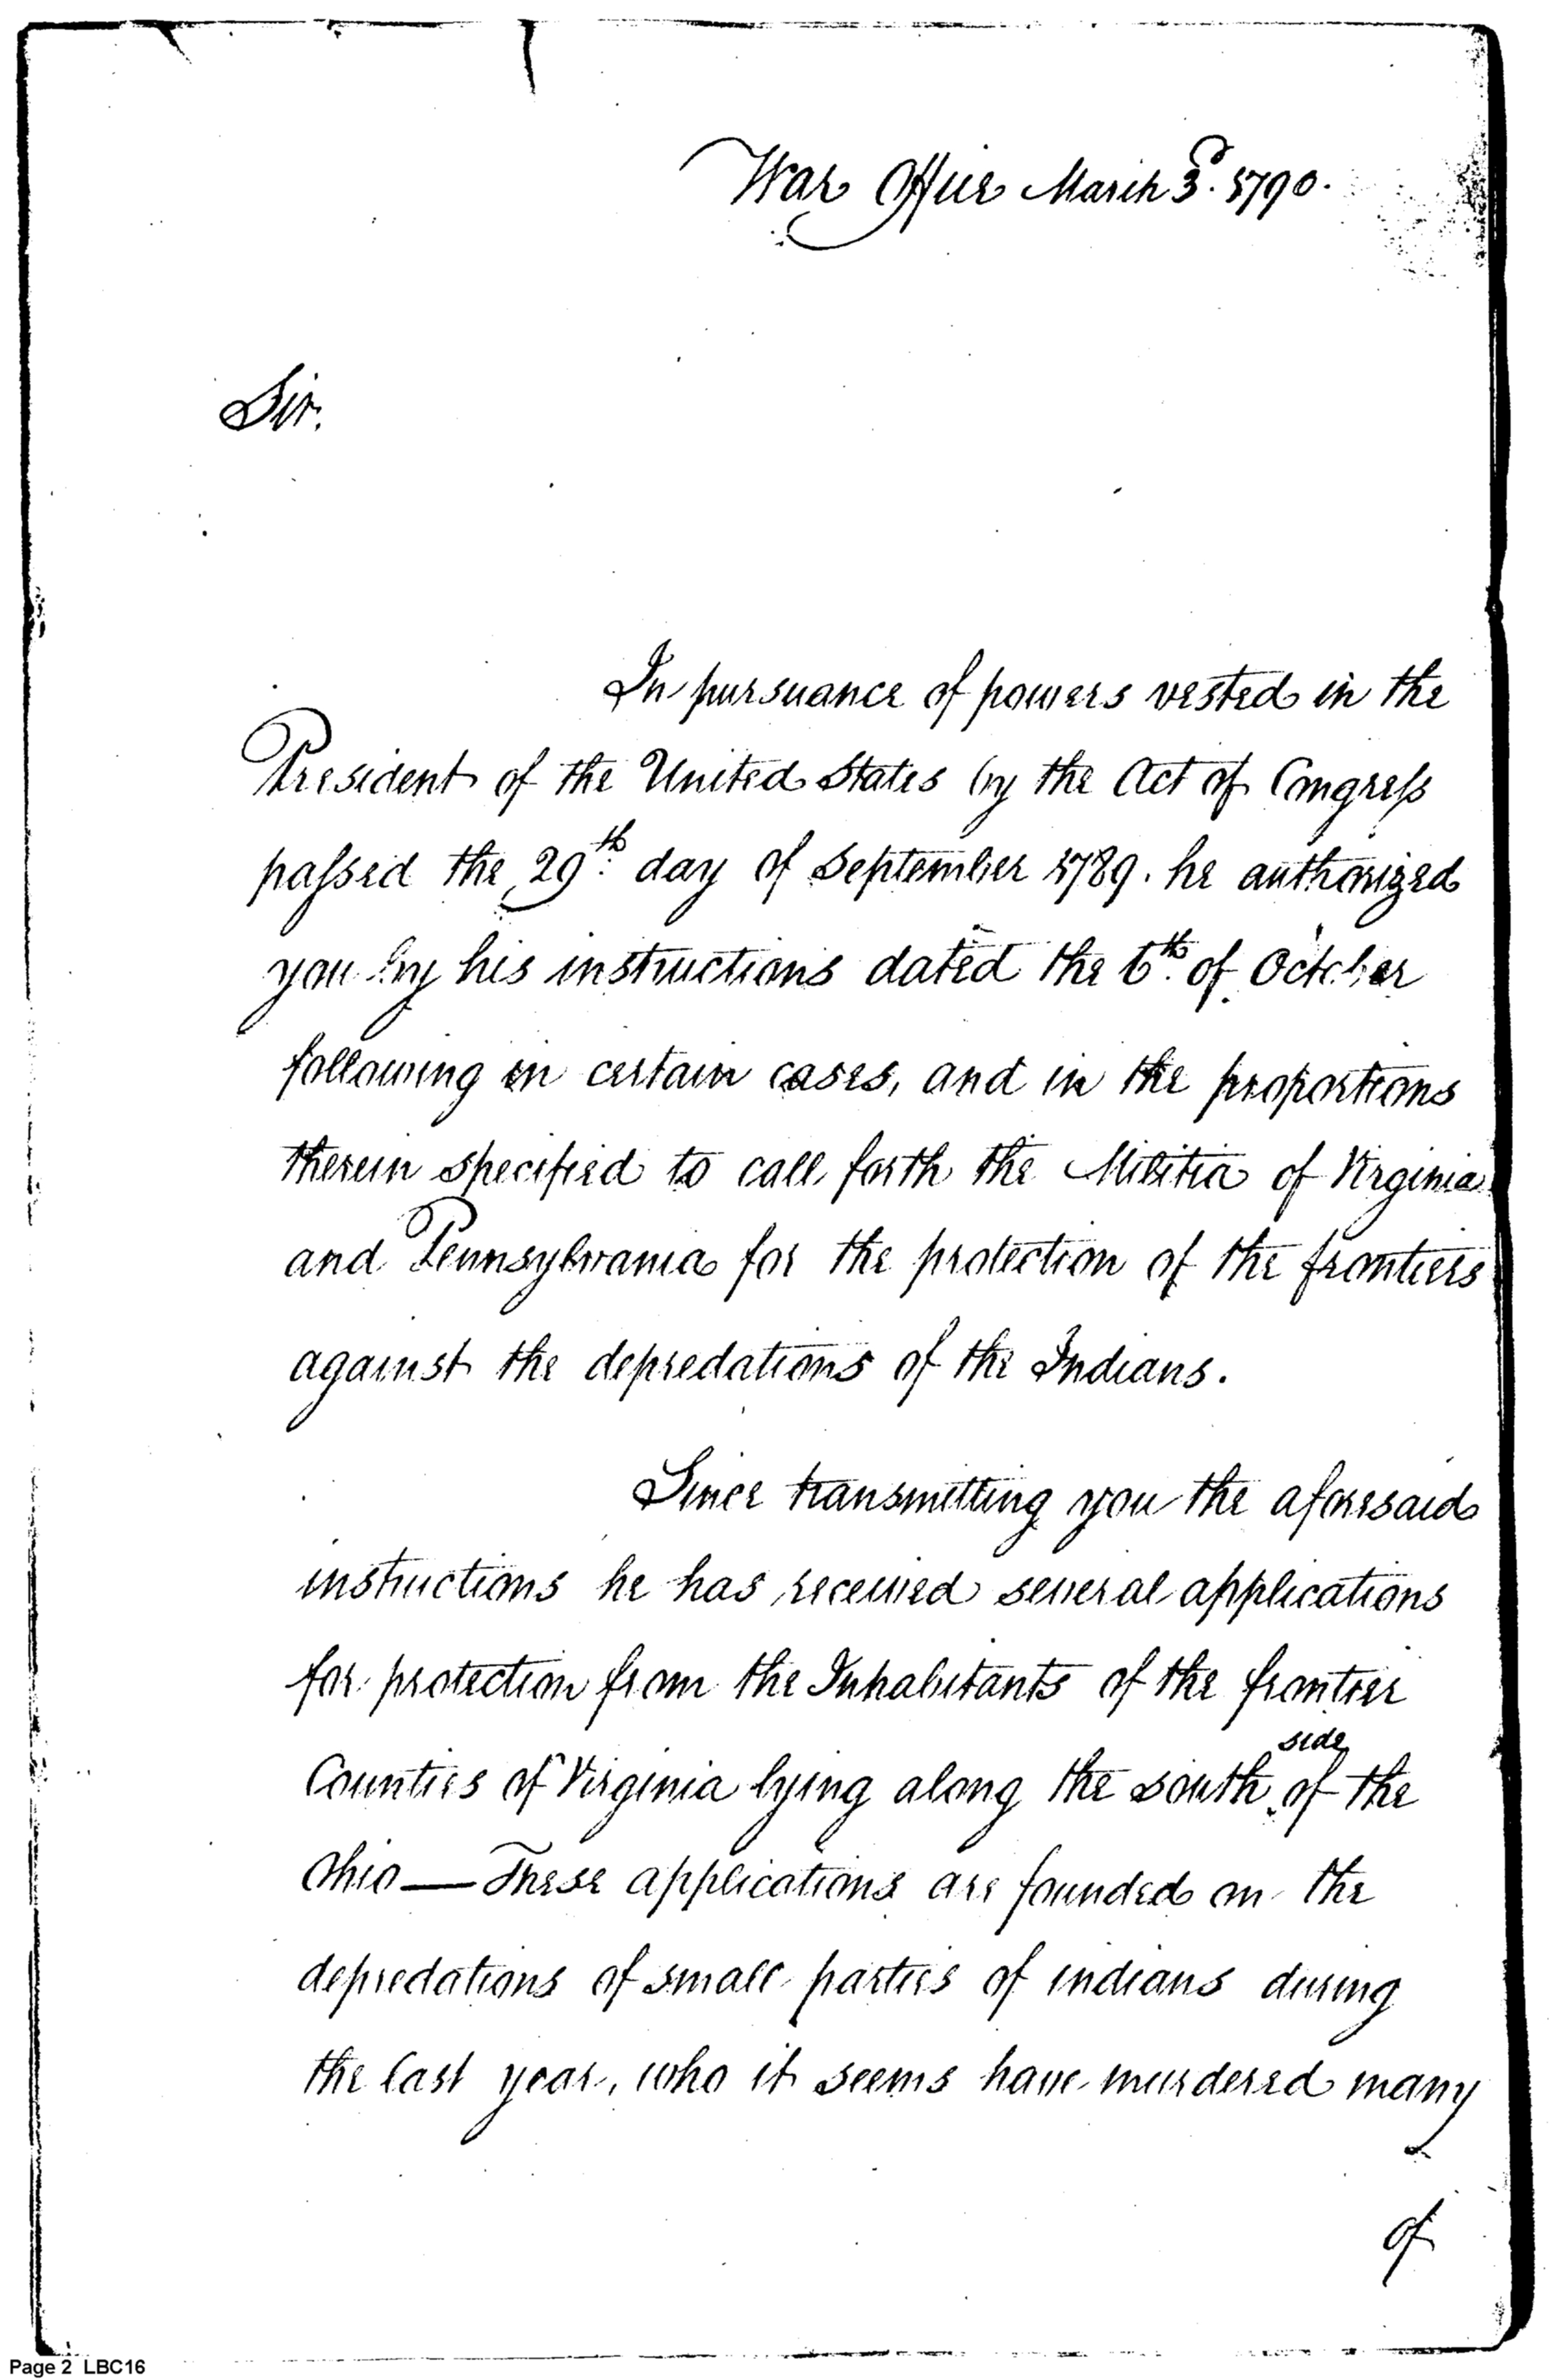 War Office March 3d. 1790.
Sir.
In pursuance of powers vested in the
President of the United States by the Act of Congreſs
paſsed the 29th. day of September 1789. he authorized
you by his instructions dated the 6th. of October
following in certain cases, and in the proportions
therein specified to call forth the Militia of Virginia
and Pennsylvania for the protection of the frontiers
against the depredations of the Indians.
Since transmitting you the aforesaid
instructions he has received several applications
for protection from the Inhabitants of the frontier
side
Counties of Virginia lying along the south of the
Ohio—These applications are founded on the
depredations of small parties of indians during
the last year, who it seems have murdered many
of
Page 2 LBC16